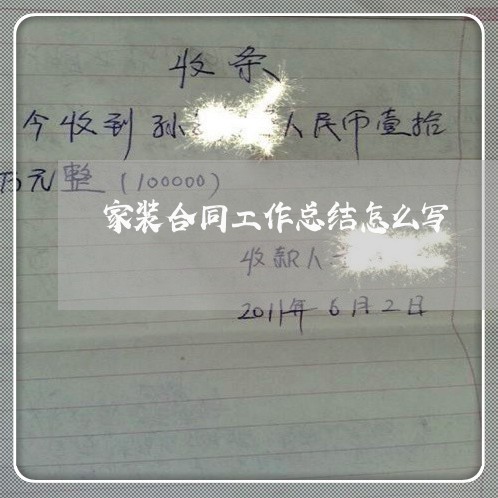 收条
今收到孙 人民币壹拾
万元整（100000）
家装合同工作总结怎么写
收款人
2011年6月2日